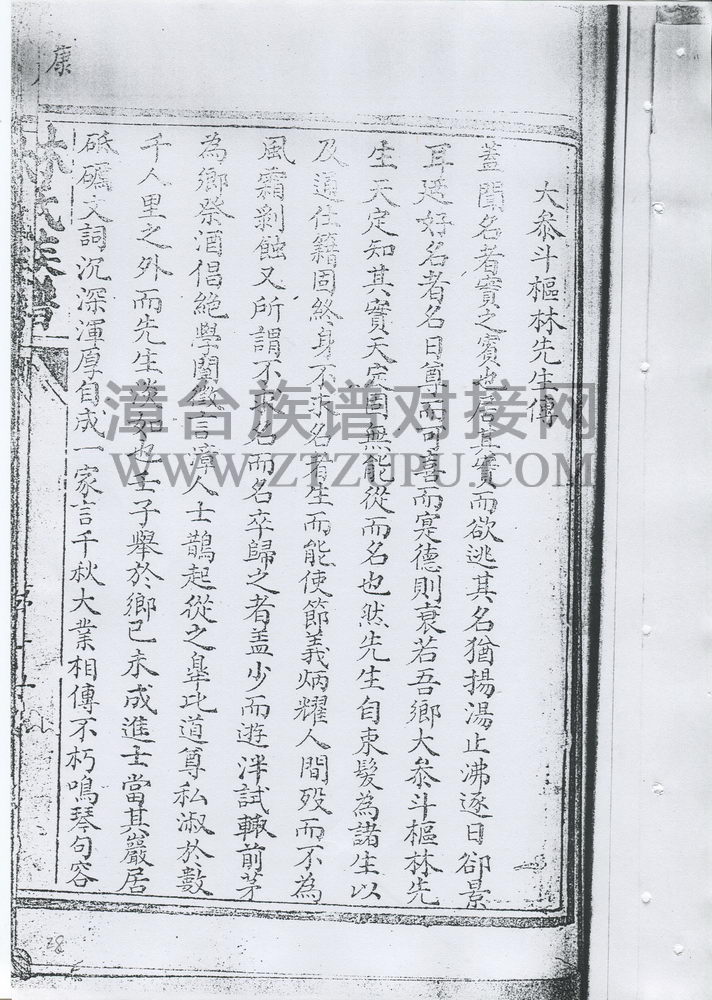 大參斗樞林先生傳
蓋聞名者實之賓也居其實而欲逃其名猶揚湯止沸逐日卻景
耳廼好名者名日尊而可喜而寔德則衰若吾鄉大參斗樞林先
生天定知其實天定固無能從而名也然先生自束髮為諸生以
及通仕籍固終身不求名者生而能使節義炳耀人間歿而不為
風霜剝蝕又所謂不求名而名卒歸之者盖少而遊泮試輙前茅
為鄉祭酒倡絶學闡微言漳人士鵲起從之臯比道尊私淑於數
千人里之外而先生淡如也壬子舉於鄉己未成進士當其巖居
砥礪文詞沉深渾厚自成一家言千秋大業相傳不朽鳴琴句容
林氏族譜
康
38
漳台族谱对接网
WWW.ZTZUPU.COM